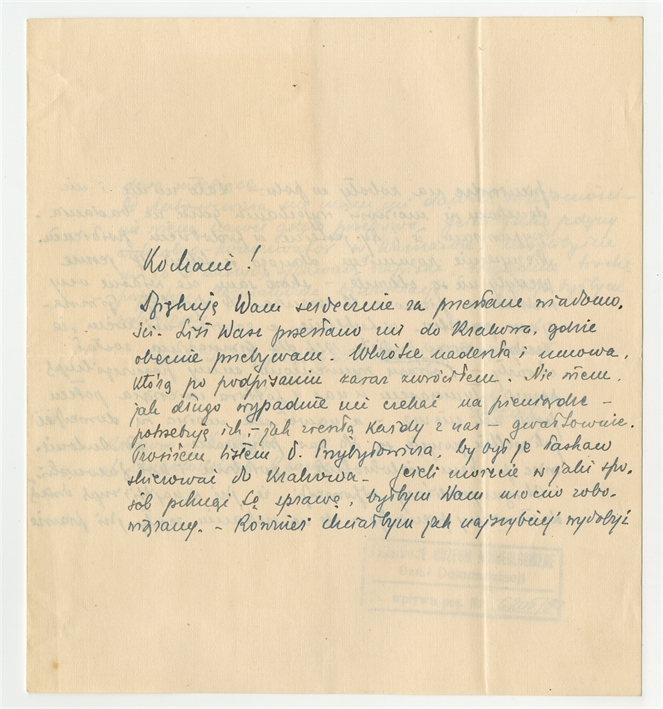 Kochani!
Dziękuję Wam serdecznie za przesłane wiadomo-
ści. List Wasz przesłano mi do Krakowa, gdzie
obecnie przebywam. Wkrótce nadeszła i umowa,
którą po podpisaniu zaraz zwróciłem. Nie wiem,
jak długo wypadnie mi czekać na pieniądze –
potrzebuję ich, – jak zresztą każdy z nas – gwałtownie.
Prosiłem listem O. Przybyłowicza, by był je łaskaw
skierować do Krakowa – Jeżeli możecie w jakiś spo-
sób pchnąć tę sprawę, byłbym Wam mocno zobo-
wiązany. – Również chciałbym jak najszybciej wydobyć